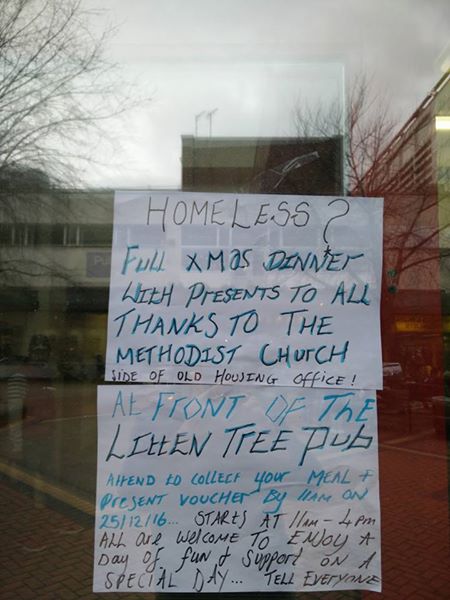 HOMELESS?
FULL XMAS DINNER
WITH PRESENTS TO ALL
THANKS TO THE
METHODIST CHURCH
SIDE OF OLD HOUSING OFFICE!
AT FRONT OF THE
LITTEN TREE PUB
ATTEND to COLLECT YOUR MEAL +
PRESENT VOUCHER BY 11AM ON
25/12/16... STARTS AT 11am - 4pm
ALL are WELCOME TO ENJOY A
Day of fun & Support ON A
SPECIAL DAY... TELL EVERYONE